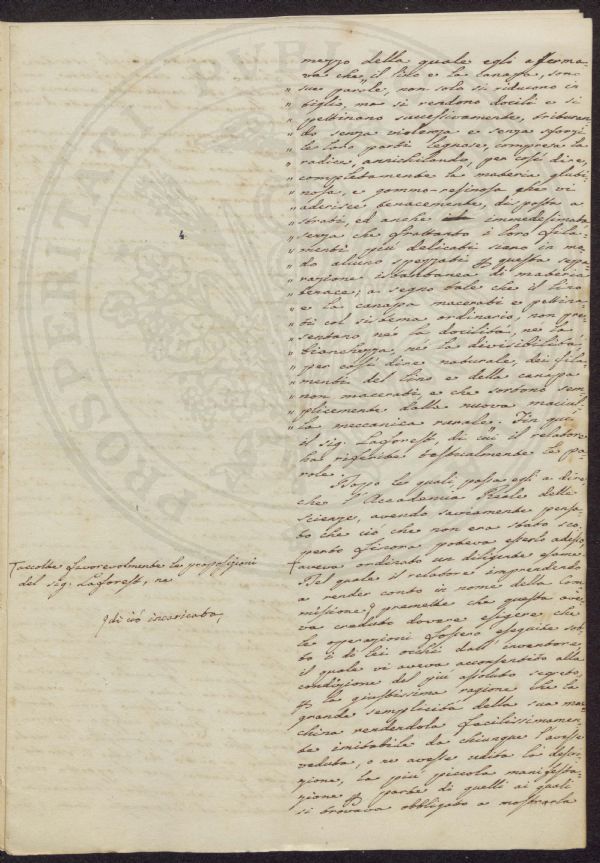 PROSPERITATI PVBL
mezzo della quale egli afferma-
va che, il lino e la canapa, sono
" sue parole, non solo si riducono in
" tiglio, ma si rendono docili e si
" pettinano successivamente, tributan-
" do senza violenza e senza sforzi
" le loro parti legnose, compresa la
" radice, annichilando, per così dire,
" completamente la materia gluti
" nosa, e gommo-resinosa che vi
" aderisce tenacemente, disposta a
" strati, ed anche immedesimata
" senza che frattanto i loro fila-
" menti più delicati sieno in mo-
" do alcuno spezzati per questa sepa-
" razione istantanea di materia
" tenace; a segno tale che il lino
" e la canapa macerati e pettina-
" ti col sistema ordinario, non pre-
" sentano nè la docilità, nè la
" bianchezza, nè la divisibilità,
" per così dire naturale, dei fila-
" menti del lino e della canapa
" non macerati, e che sortono sem-
" plicemente dalla nuova macial-
" la meccanica rurale. Fin qui
il sig. Laforest, di cui il relatore
ha riferite testualmente le pa-
role.
Dopo le quali, passa egli a dire
che l'Accademia Reale delle
Scienze, avendo saviamente pensa-
to che ciò che non era stato sco-
perto finora poteva esserlo adesso
aveva ordinato un diligente esame
Del quale il relatore imprendendo
a render conto in nome della Com
missione, premette che questa ave-
va creduto dovere esigere che
le operazioni fossero eseguite sot-
to i di lei occhi dall'inventore,
il quale vi aveva acconsentito alla
condizione del più assoluto segreto,
per la giustissima ragione che la
grande semplicità della sua mac-
china rendendola facilissimamen-
te imitabile da chiunque l'avesse
veduta, o ne avesse udita la descri-
zione, la più piccola manifesta-
zione per parte di quelli ai quali
si trovava obbligato a mostrarla
4
accolte favorevolmente le proposizioni
del sig. Laforest, ne
di ciò incaricata,